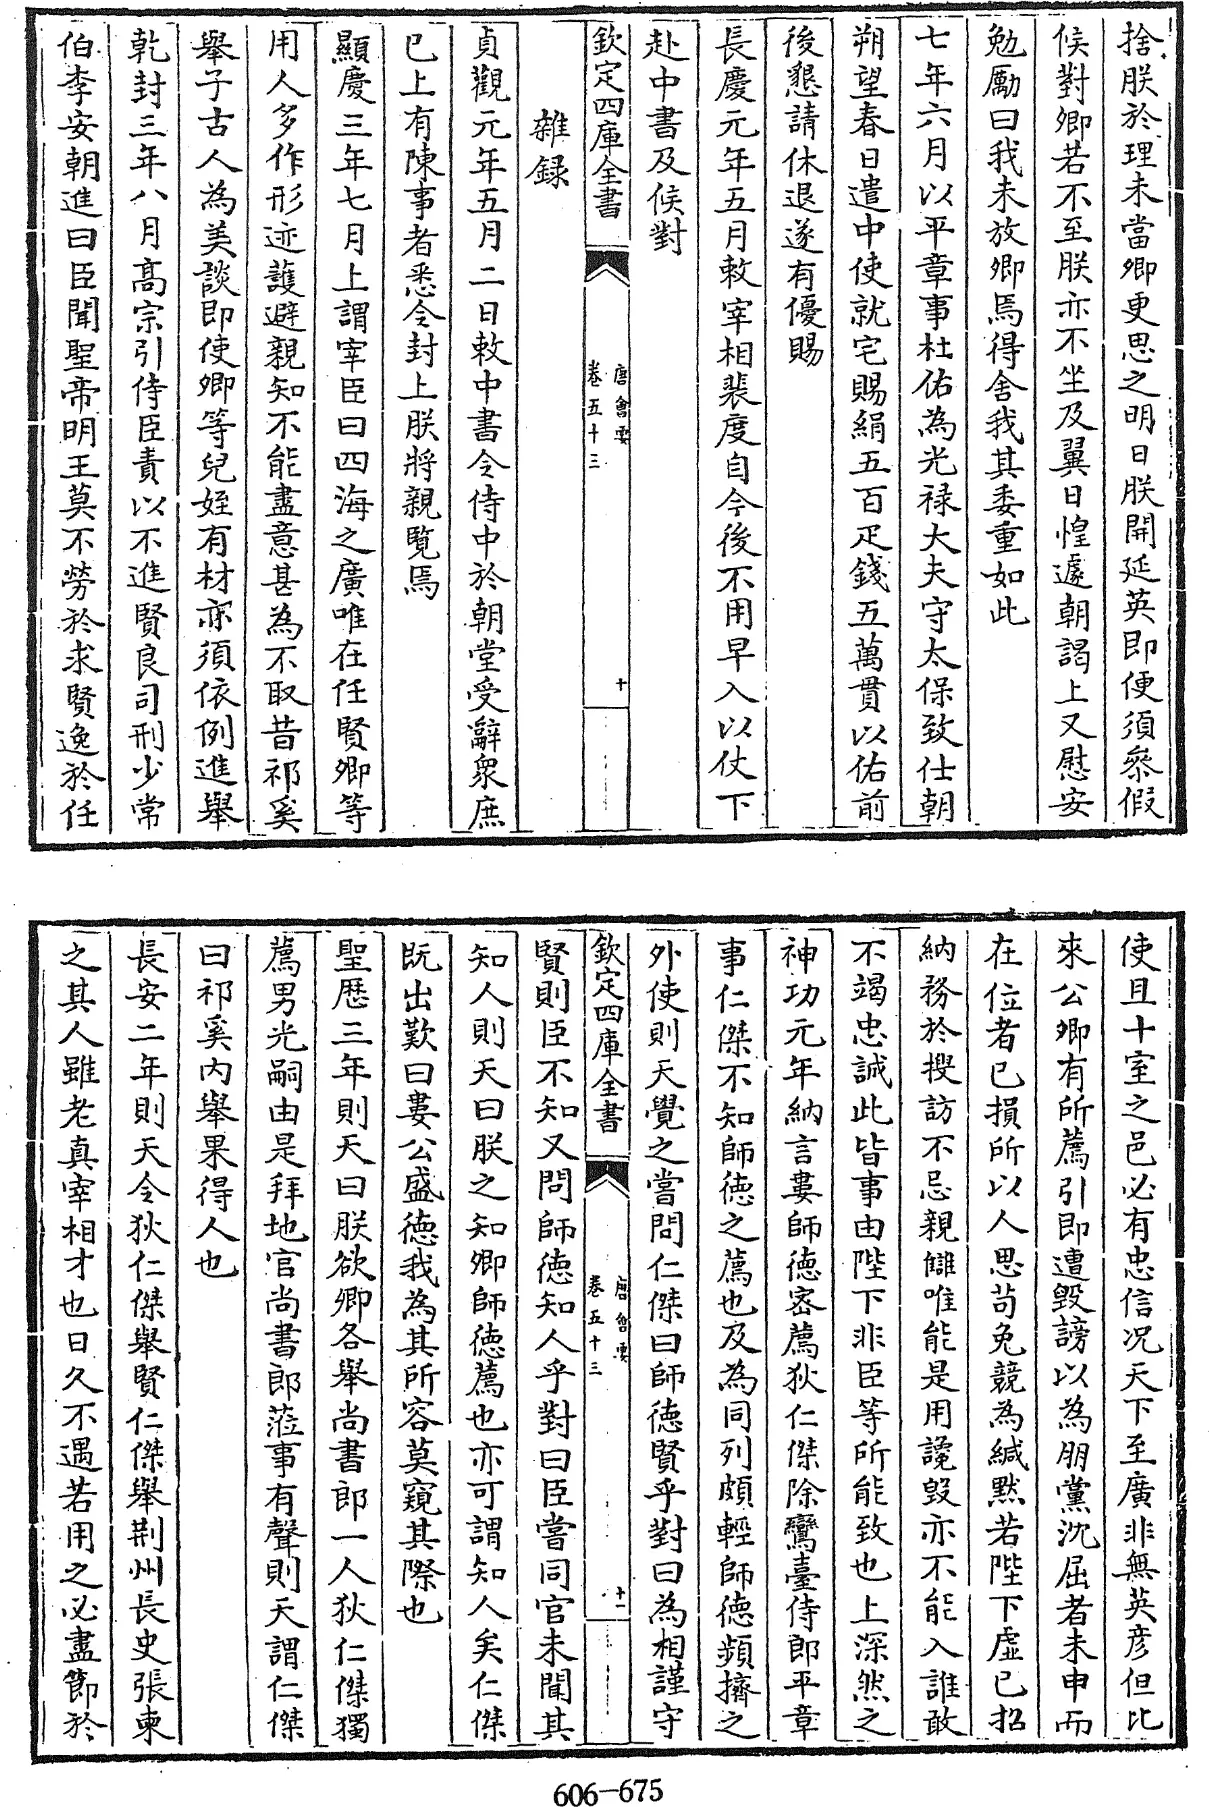 捨朕於理未當卿更思之明日朕開延英即便須叅假
候對卿若不至朕亦不坐及翼日惶遽朝謁上又慰安
勉勵曰我未放卿焉得舍我其委重如此
七年六月以平章事杜佑為光禄大夫守太保致仕朝
朔望春日遣中使就宅賜絹五百疋錢五萬貫以佑前
後懇請休退遂有優賜
長慶元年五月敕宰相裴度自今後不用早入以仗下
赴中書及候對
欽定四庫全書
唐會要
卷五十三
十
雜録
貞觀元年五月二日敕中書令侍中於朝堂受辭衆庶
已上有陳事者悉令封上朕將親覽焉
顯慶三年七月上謂宰臣曰四海之廣唯在任賢卿等
用人多作形迹護避親知不能盡意甚為不取昔祁奚
舉子古人為美談即使卿等兒姪有材亦須依例進舉
乾封三年八月高宗引侍臣責以不進賢良司刑少常
伯李安朝進曰臣聞聖帝明王莫不勞於求賢逸於任
使且十室之邑必有忠信况天下至廣非無英彦但比
來公卿有所薦引即遭毀謗以為朋黨沈屈者未申而
在位者已損所以人思苟免競為緘黙若陛下虛已招
納務於搜訪不忌親讎唯能是用讒毀亦不能入誰敢
不竭忠誠此皆事由陛下非臣等所能致也上深然之
神功元年納言婁師德密薦狄仁傑除鸞臺侍郎平章
事仁傑不知師德之薦也及為同列頗輕師德頻擠之
外使則天覺之嘗問仁傑曰師德賢乎對曰為相謹守
欽定四庫全書
唐會要
卷五十三
十一
賢則臣不知又問師德知人乎對曰臣嘗同官未聞其
知人則天曰朕之知卿師德薦也亦可謂知人矣仁傑
既出歎曰婁公盛德我為其所容莫窺其際也
聖歴三年則天曰朕欲卿各舉尚書郎一人狄仁傑獨
薦男光嗣由是拜地官尚書郎蒞事有聲則天謂仁傑
曰祁奚内舉果得人也
長安二年則天令狄仁傑舉賢仁傑舉荆州長史張柬
之其人雖老真宰相才也日久不遇若用之必盡節於
606-675